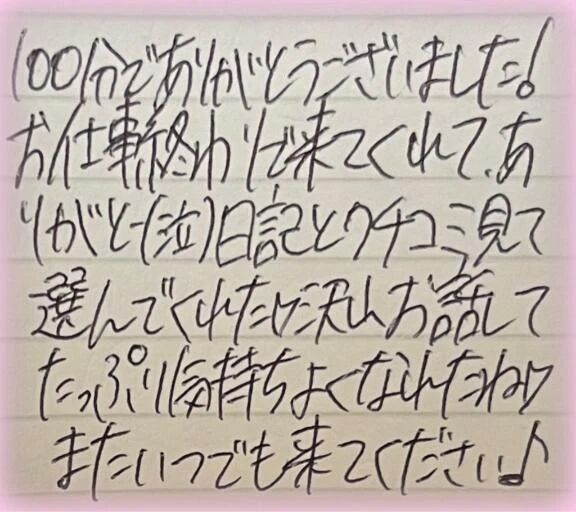 100分でありがとうございました!
お仕事終わりで来てくれて、あ
りがとー(泣)日記とクチコミ見て
選んでくれたけ沢山お話して
たっぷり気持ちよくなれたね♡
またいつでも来てください♪